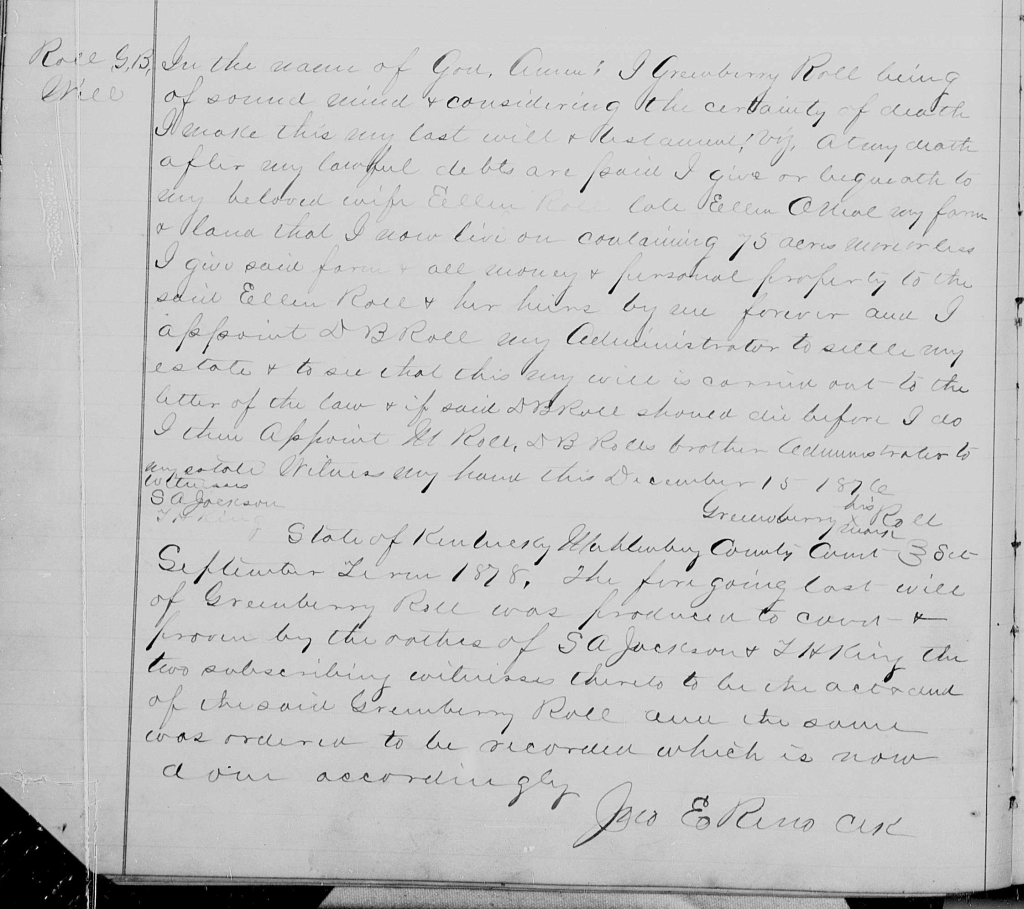 Roll G,B,
Will
In the name of God, Amen: I Greenberry Roll being
of sound mind & considering the certainty of death
I make this my last will & testament! viz, At my death
after my lawful debts are paid I give or bequeath to
my beloved wife Ellen Roll late Ellen ONeal my farm
& land that I now live on containing 75 acres more or less
I give said farm & all money & personal property to the
said Ellen Roll & her heirs by me forever and I
appoint D B Roll my Administrator to settle my
estate & to see that this my will is carried out to the
letter of the law & if said D B Roll should die before I do
I then Appoint M Roll, D B Rolls brother Administrator to
my estate Witness my hand this December 15 1876
Witnesses
S A Jackson
T H King
Greenberry his x mark Roll
State of Kentucky Muhlenberg County Court Sct
September Term 1878, The foregoing last will
of Greenberry Roll was produced to court &
proven by the oathes of S A Jackson & T H King the
two subscribing witnesses thereto to be the act and deed
of the said Greenberry Roll and the same
was ordered to be recorded which is now
done accordingly
Jno E Reno Clk